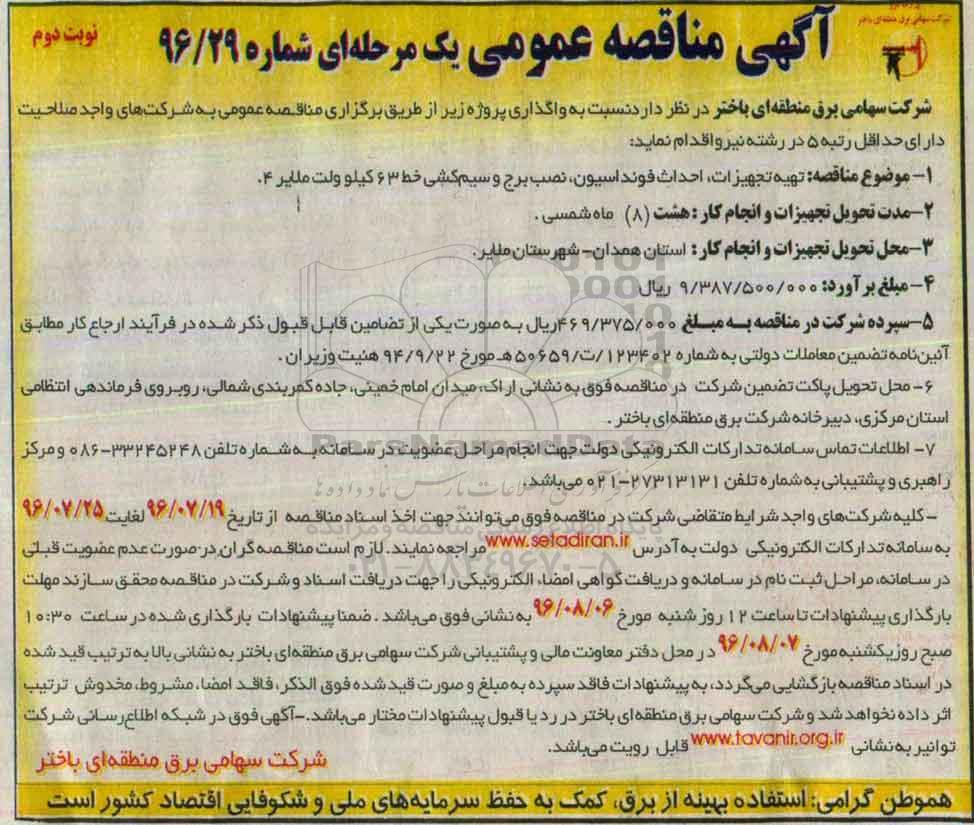 شرکت سهامی برق منطقه‌ای باختر
آگهی مناقصه عمومی یک مرحله‌ای شماره ۹۶/۲۹
نوبت دوم
شرکت سهامی برق منطقه‌ای باختر در نظر دارد نسبت به واگذاری پروژه زیر از طریق برگزاری مناقصه عمومی به شرکت‌های واجد صلاحیت
دارای حداقل رتبه ۵ در رشته نیرو اقدام نماید:
۱- موضوع مناقصه: تهیه تجهیزات، احداث فونداسیون، نصب برج و سیم‌کشی خط ۶۳ کیلو ولت ملایر ۴.
۲- مدت تحویل تجهیزات و انجام کار: هشت (۸) ماه شمسی.
۳- محل تحویل تجهیزات و انجام کار: استان همدان- شهرستان ملایر.
۴- مبلغ برآورد: ۹/۳۸۷/۵۰۰/۰۰۰ ریال
۵- سپرده شرکت در مناقصه به مبلغ ۴۶۹/۳۷۵/۰۰۰ ریال به صورت یکی از تضامین قابل قبول ذکر شده در فرآیند ارجاع کار مطابق
آئین‌نامه تضمین معاملات دولتی به شماره ۱۲۳۴۰۲/ت/۵۰۶۵۹ هـ مورخ ۹۴/۹/۲۲ هئیت وزیران.
۶- محل تحویل پاکت تضمین شرکت در مناقصه فوق به نشانی اراک، میدان امام خمینی، جاده کمربندی شمالی، روبروی فرماندهی انتظامی
استان مرکزی، دبیرخانه شرکت برق منطقه‌ای باختر.
۷- اطلاعات تماس سامانه تدارکات الکترونیکی دولت جهت انجام مراحل عضویت در سامانه به شماره تلفن ۳۳۲۴۵۲۴۸-۰۸۶ و مرکز
راهبری و پشتیبانی به شماره تلفن ۲۷۳۱۳۱۳۱-۰۲۱ می‌باشد.
- کلیه شرکت‌های واجد شرایط متقاضی شرکت در مناقصه فوق می‌توانند جهت اخذ اسناد مناقصه از تاریخ ۹۶/۰۷/۱۹ لغایت ۹۶/۰۷/۲۵
به سامانه تدارکات الکترونیکی دولت به آدرس www.setadiran.ir مراجعه نمایند. لازم است مناقصه گران در صورت عدم عضویت قبلی
در سامانه، مراحل ثبت نام در سامانه و دریافت گواهی امضاء الکترونیکی را جهت دریافت اسناد و شرکت در مناقصه محقق سازند مهلت
بارگذاری پیشنهادات تا ساعت ۱۲ روز شنبه مورخ ۹۶/۰۸/۰۶ به نشانی فوق می‌باشد. ضمنا پیشنهادات بارگذاری شده در ساعت ۱۰:۳۰
صبح روز یکشنبه مورخ ۹۶/۰۸/۰۷ در محل دفتر معاونت مالی و پشتیبانی شرکت سهامی برق منطقه‌ای باختر به نشانی بالا به ترتیب قید شده
در اسناد مناقصه بازگشایی می‌گردد، به پیشنهادات فاقد سپرده به مبلغ و صورت قید شده فوق الذکر، فاقد امضا، مشروط، مخدوش ترتیب
اثر داده نخواهد شد و شرکت سهامی برق منطقه‌ای باختر در رد یا قبول پیشنهادات مختار می‌باشد.-آگهی فوق در شبکه اطلاع‌رسانی شرکت
توانیر به نشانی www.tavanir.org.ir قابل رویت می‌باشد.
شرکت سهامی برق منطقه‌ای باختر
هموطن گرامی: استفاده بهینه از برق، کمک به حفظ سرمایه‌های ملی و شکوفایی اقتصاد کشور است
ParsNamadData
۰۲۱-۸۸۳۴۹۶۷۰-۵